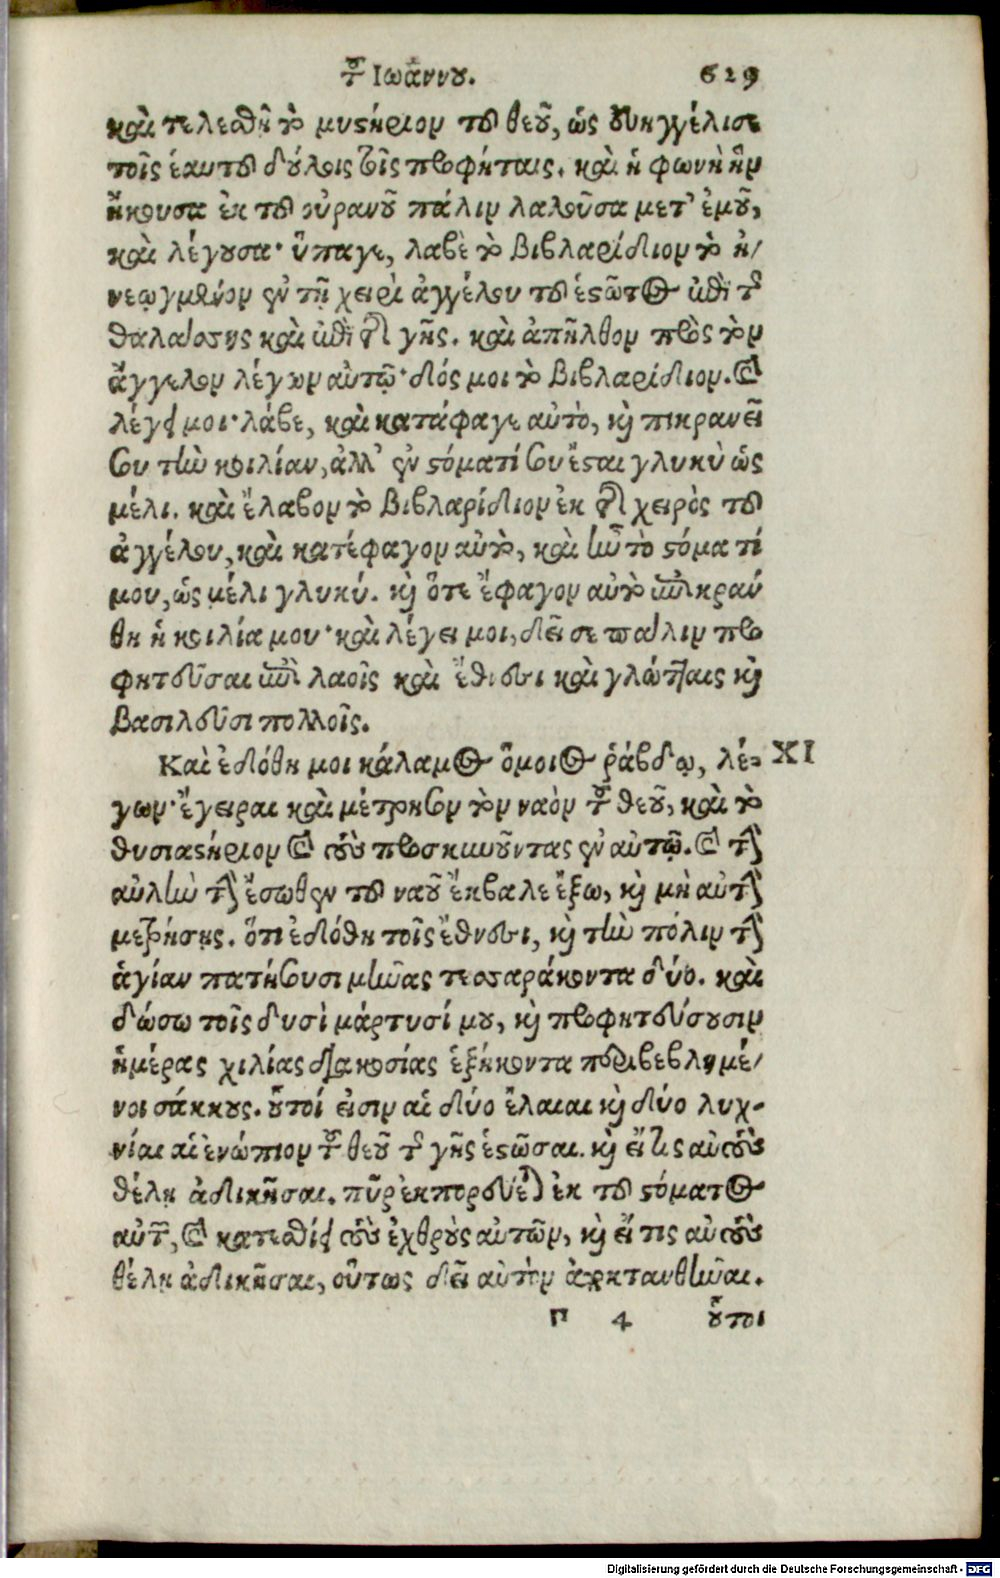 τοῦ Ιωάννου. 629
καὶ τελεσθῇ τὸ μυστήριον τοῦ θεοῦ, ὡς εὐηγγέλισε
τοῖς ἑαυτοῦ δούλοις τοῖς προφήταις. καὶ ἡ φωνὴ ἣν
ἤκουσα ἐκ τοῦ οὐρανοῦ πάλιν λαλοῦσα μετ' ἐμοῦ,
καὶ λέγουσα· ὕπαγε, λαβὲ τὸ βιβλαρίδιον τὸ ἠ/
νεῳγμένον ἐν τῇ χειρὶ ἀγγέλου τοῦ ἑστῶτος ἐπὶ τῆς
θαλάσσης καὶ ἐπὶ τῆς γῆς. καὶ ἀπῆλθον πρὸς τὸν
ἄγγελον λέγων αὐτῷ· δός μοι τὸ βιβλαρίδιον. καὶ
λέγει μοι· λάβε, καὶ κατάφαγε αὐτὸ, καὶ πικρανεῖ
σου τὴν κοιλίαν, ἀλλ' ἐν στόματί σου ἔσται γλυκὺ ὡς
μέλι. καὶ ἔλαβον τὸ βιβλαρίδιον ἐκ τῆς χειρὸς τοῦ
ἀγγέλου, καὶ κατέφαγον αὐτὸ, καὶ ἦν τὸ στόματί
μου, ὡς μέλι γλυκύ. καὶ ὅτε ἔφαγον αὐτὸ ἐπικράν
θη ἡ κοιλία μου· καὶ λέγει μοι, δεῖ σε πάλιν προ
φητεῦσαι ἐπὶ λαοῖς καὶ ἔθνεσι καὶ γλώτταις καὶ
βασιλεῦσι πολλοῖς.
Καὶ ἐδόθη μοι κάλαμος ὅμοιος ῥάβδῳ, λέ- XI
γων· ἔγειραι καὶ μέτρησον τὸν ναὸν τοῦ θεοῦ, καὶ τὸ
θυσιαστήριον καὶ τοὺς προσκυνοῦντας ἐν αὐτῷ. καὶ τὴν
αὐλὴν τὴν ἔσωθεν τοῦ ναοῦ ἔκβαλε ἔξω, καὶ μὴ αὐτὴν
μετρήσῃς. ὅτι ἐδόθη τοῖς ἔθνεσι, καὶ τὴν πόλιν τὴν
ἁγίαν πατήσουσι μῆνας τεσσαράκοντα δύο. καὶ
δώσω τοῖς δυσὶ μάρτυσί μου, καὶ προφητεύσουσιν
ἡμέρας χιλίας διακοσίας ἑξήκοντα περιβεβλημέ/
νοι σάκκους. οὗτοί εἰσιν αἱ δύο ἔλαιαι καὶ δύο λυχ-
νίαι αἱ ἐνώπιον τοῦ θεοῦ τῆς γῆς ἑστῶσαι. καὶ εἴ τις αὐτοὺς
θέλῃ ἀδικῆσαι. πῦρ ἐκπορεύεται ἐκ τοῦ στόματος
αὐτῶν, καὶ κατεσθίει τοὺς ἐχθροὺς αὐτῶν, καὶ εἴ τις αὐτοὺς
θέλῃ ἀδικῆσαι, οὕτως δεῖ αὐτὸν ἀποκτανθῆναι.
π 4 οὗτοι
Digitalisierung gefördert durch die Deutsche Forschungsgemeinschaft - DFG